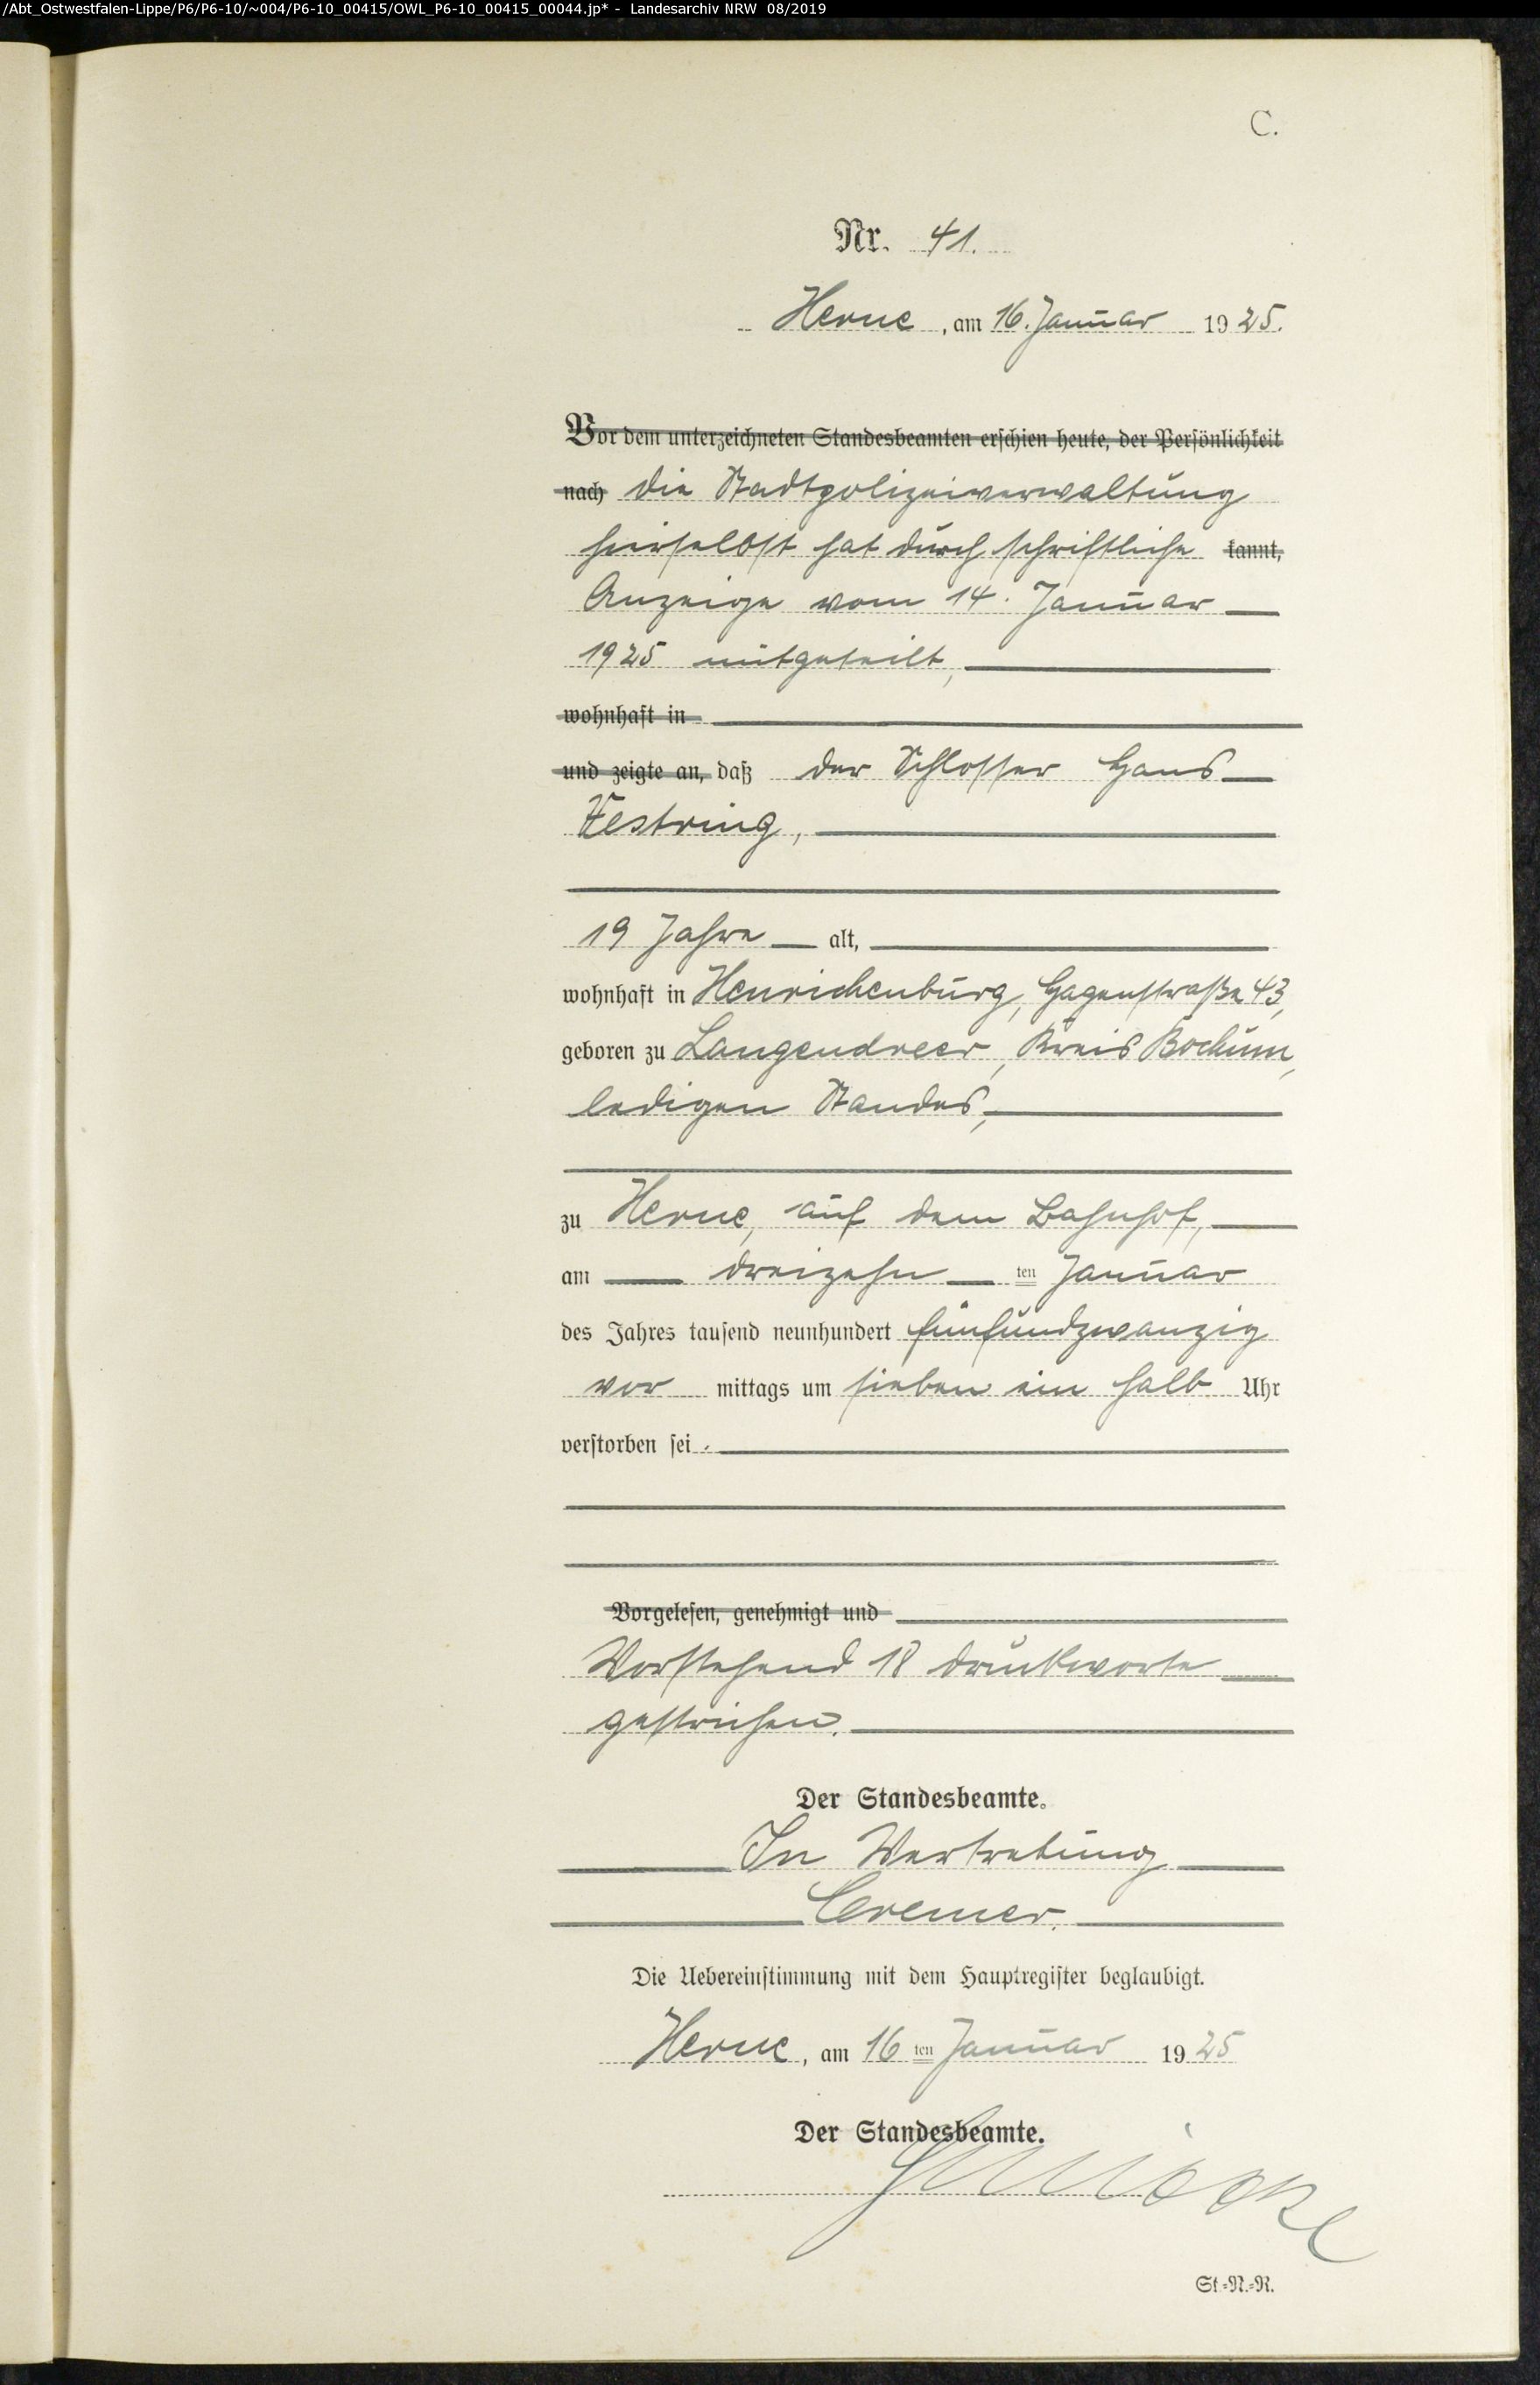 /Abt_Ostwestfalen-Lippe/P6/P6-10/~004/P6-10_00415/OWL_P6-10_00415_00044.jp* - Landesarchiv NRW 08/2019
C.
Nr. 41.
Herne, am 16. Januar 1925.
Vor dem unterzeichneten Standesbeamten erschien heute, der Persönlichkeit
nach die Stadtpolizeiverwaltung
hierselbst hat durch schriftliche kannt,
Anzeige vom 14. Januar
1925 mitgeteilt,
wohnhaft in
und zeigte an, daß der Schlosser Hans
Festring,
19 Jahre alt,
wohnhaft in Henrichenburg, Hagenstraße 43,
geboren zu Langendreer, Kreis Bochum,
ledigen Standes,
zu Herne, auf dem Bahnhof,
am dreizehn ten Januar
des Jahres tausend neunhundert fünfundzwanzig
vor mittags um sieben ein halb Uhr
verstorben sei.
Vorgelesen, genehmigt und
Vorstehend 18 Druckworte
gestrichen.
Der Standesbeamte.
In Vertretung
Cremer.
Die Uebereinstimmung mit dem Hauptregister beglaubigt.
Herne, am 16 ten Januar 1925
Der Standesbeamte.
St.=N.=R.